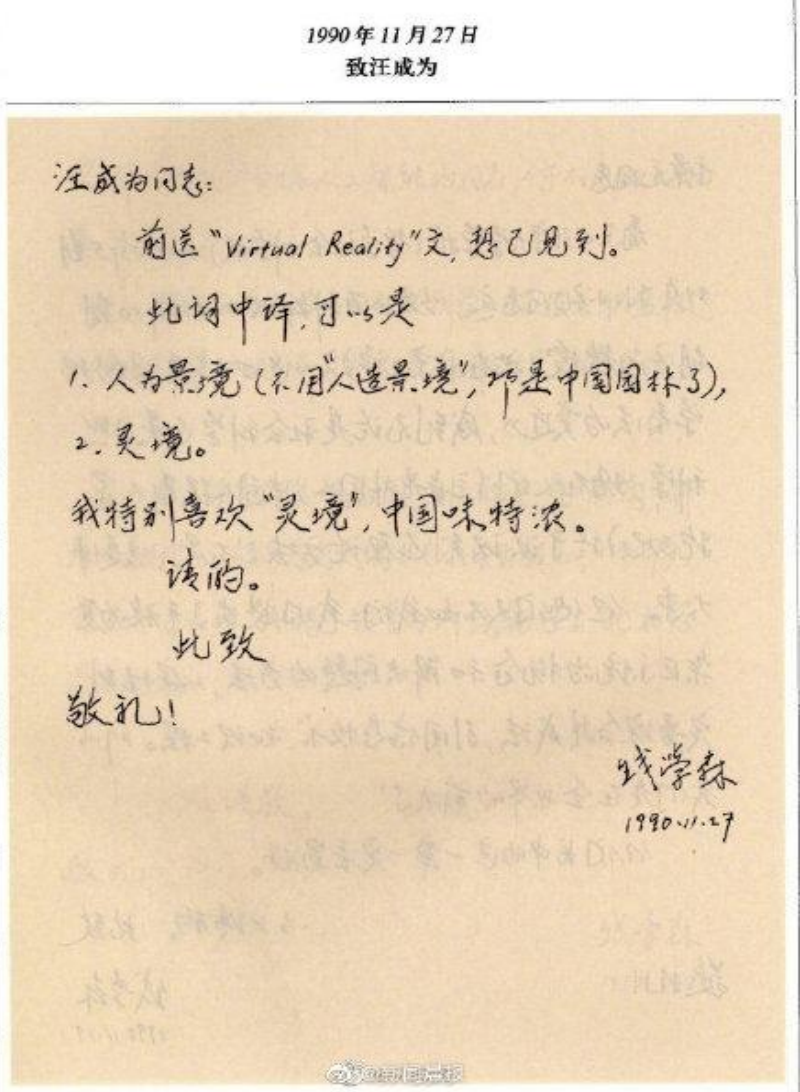 1990年11月27日
致汪成为
汪成为同志:
前送“Virtual Reality”文,想已见到。
此词中译,可以是
1.人为景境(不用“人造景境”,那是中国园林了),
2.灵境。
我特别喜欢“灵境”,中国味特浓。
请酌。
此致
敬礼!
钱学森
1990.11.27